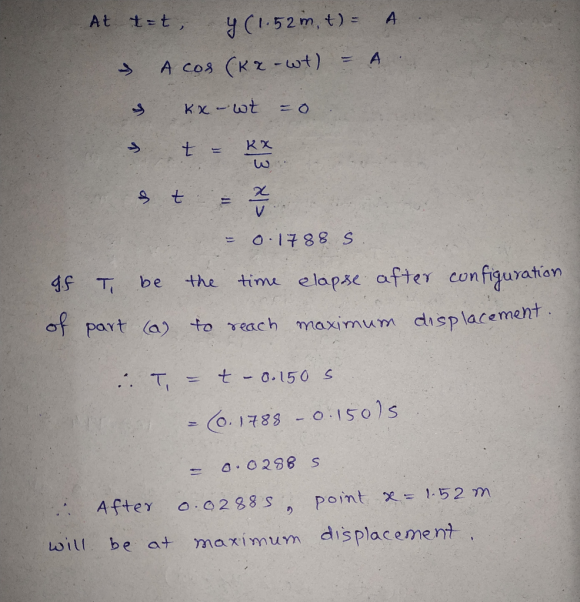 At t=t, y(1.52m, t) = A
→ A cos (Kx - wt) = A
→ Kx - wt = 0
→ t = Kx/w
→ t = x/v
= 0.1788 s
If T₁ be the time elapse after configuration
of part (a) to reach maximum displacement.
∴ T₁ = t - 0.150 s
= (0.1788 - 0.150)s
= 0.0288 s
∴ After 0.0288s, point x = 1.52 m
will be at maximum displacement.